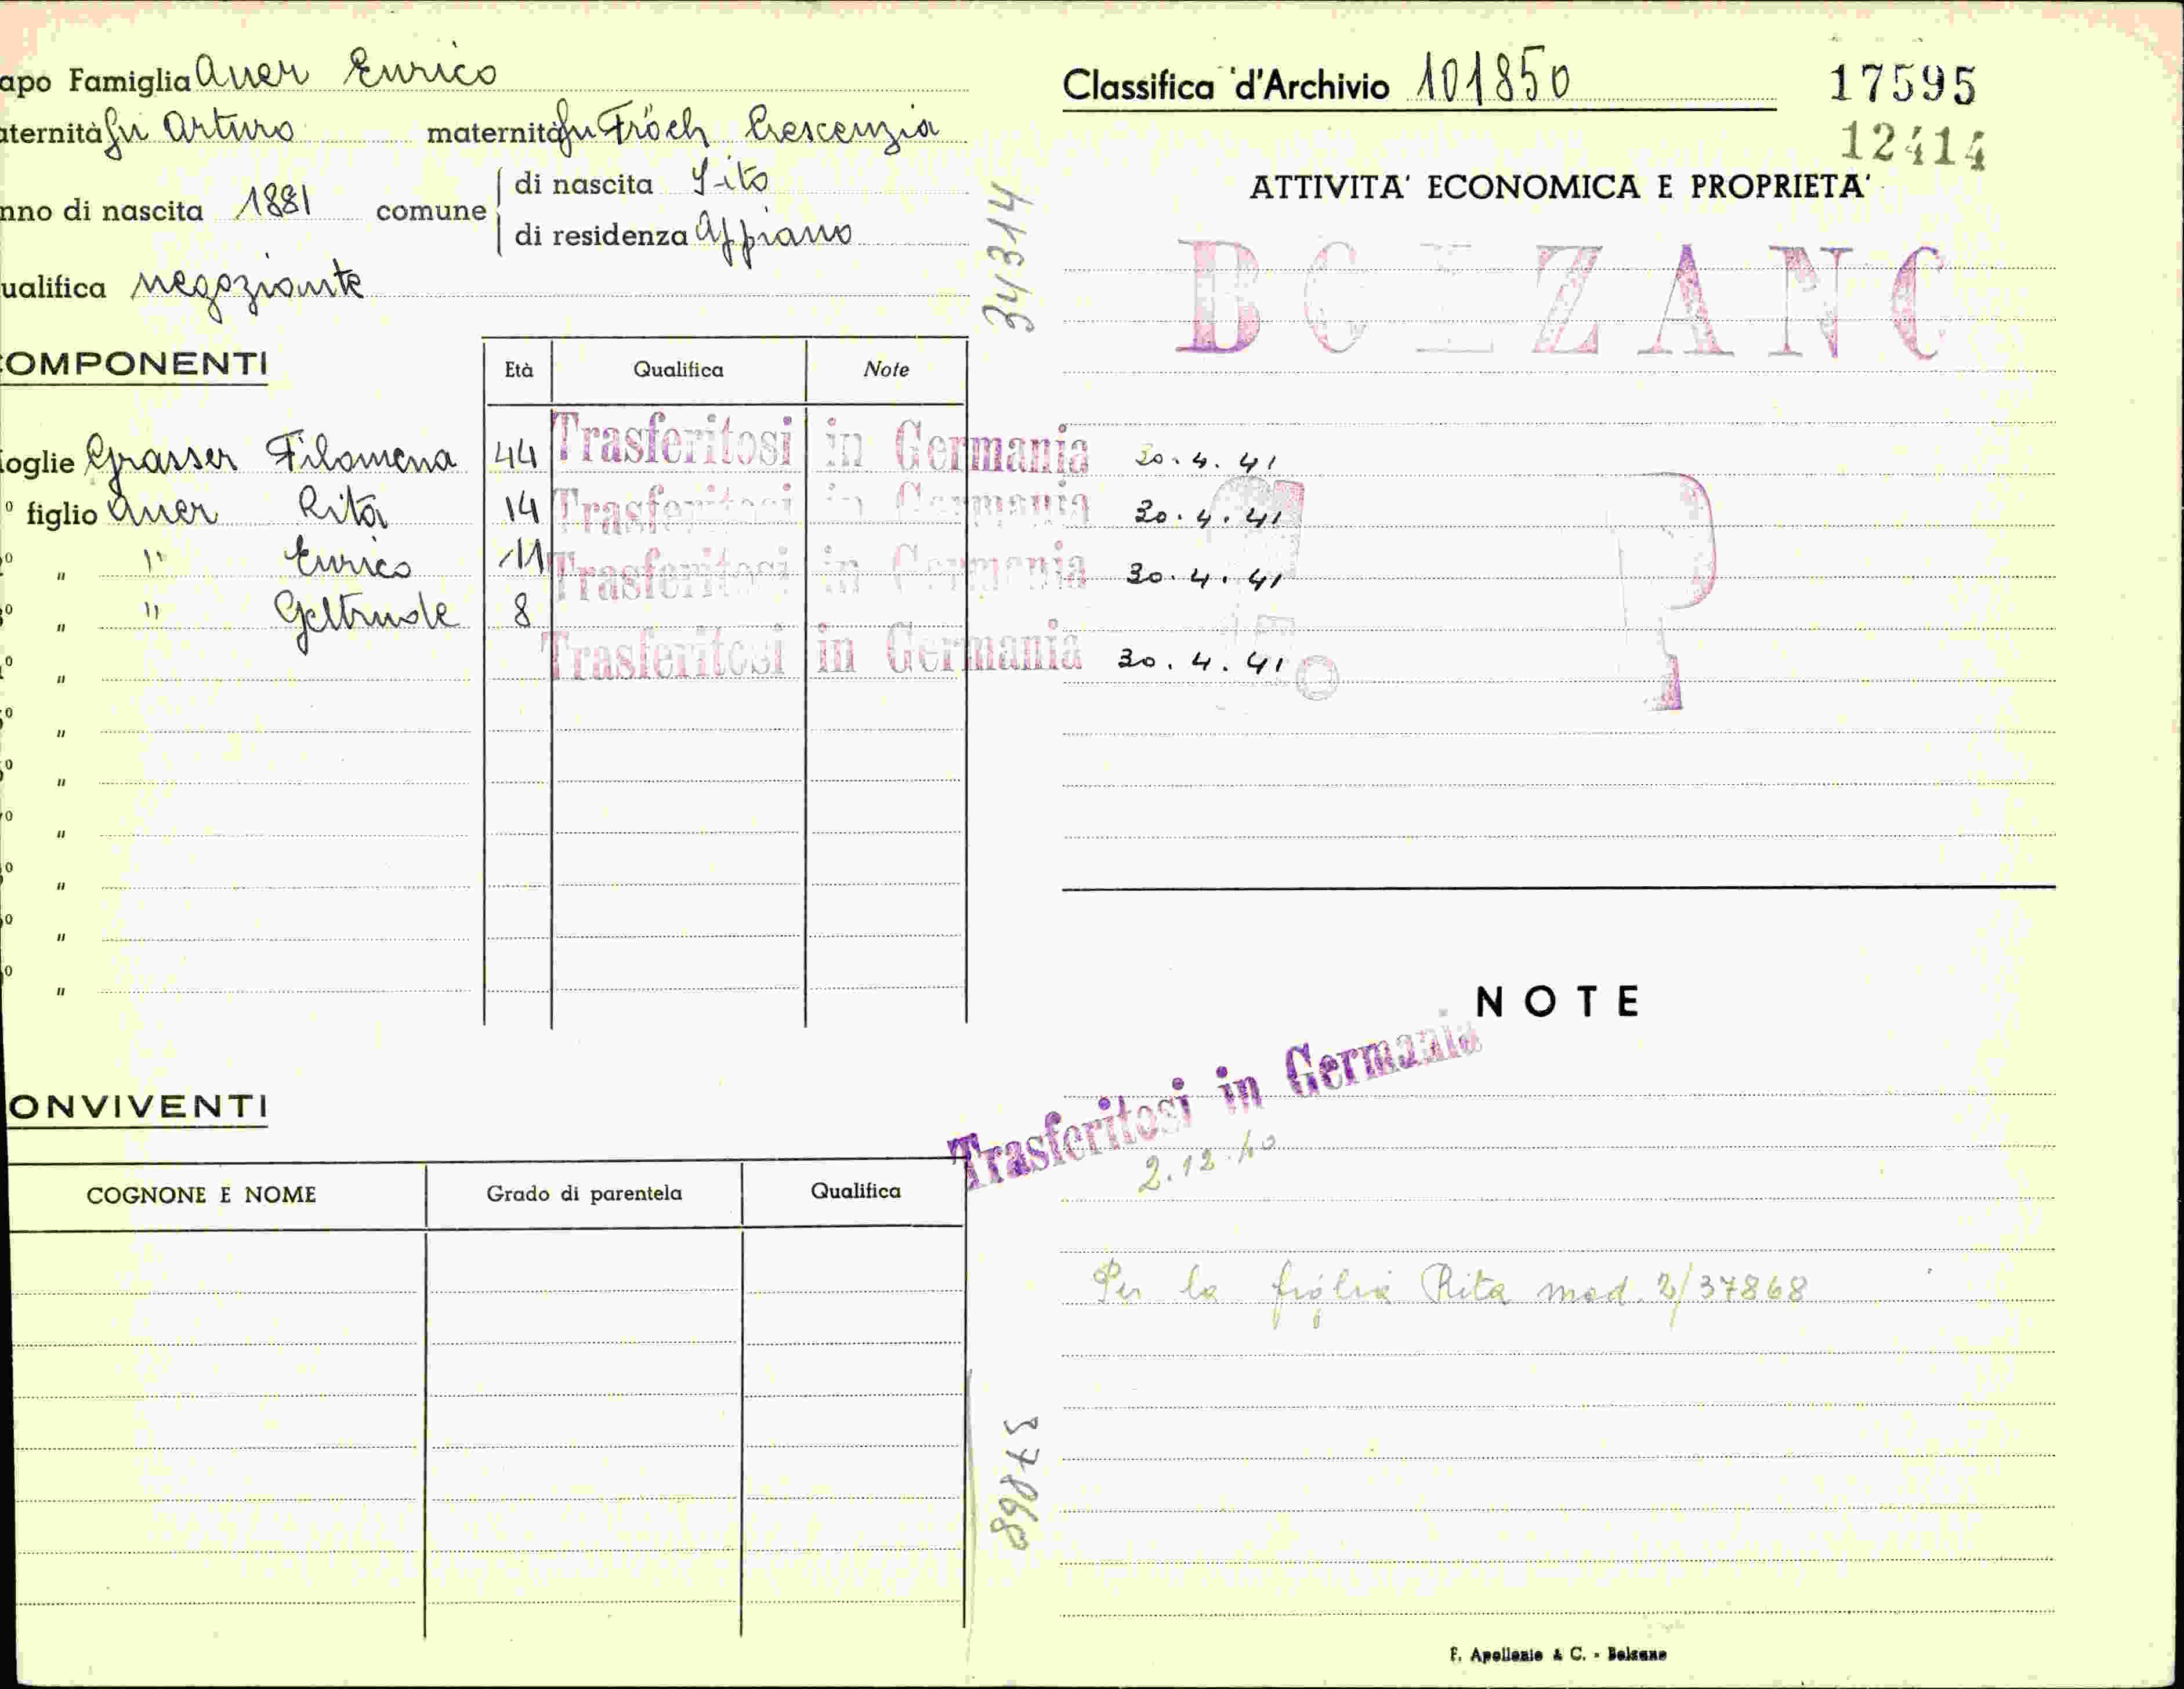 apo Famiglia Auer Enrico
aternità fu Arturo maternità fu Fröch Crescenzia
nno di nascita 1881 comune di nascita Sito
di residenza Appiano
ualifica negoziante
OMPONENTI
Età Qualifica Note
oglie Grasser Filomena 44 Trasferitosi in Germania 30.4.41
º figlio Auer Rita 14 Trasferitosi in Germania 30.4.41
º " " Enrico 11 Trasferitosi in Germania 30.4.41
º " " Geltrude 8
º " Trasferitosi in Germania 30.4.41
º "
º "
º "
º "
º "
º "
ONVIVENTI
COGNONE E NOME Grado di parentela Qualifica
343114
37868
Classifica d'Archivio 101850
17595
12414
ATTIVITA' ECONOMICA E PROPRIETA'
BOLZANO
P
NOTE
Trasferitosi in Germania
2.12.40
Per la figlia Rita mod. 2/37868
F. Apollonio & C. - Bolzano